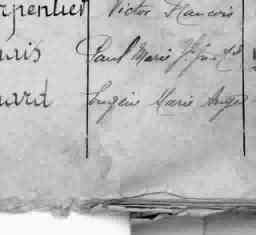 rpentier Victor François
nais Paul Marie
nard Eugène Marie Ange